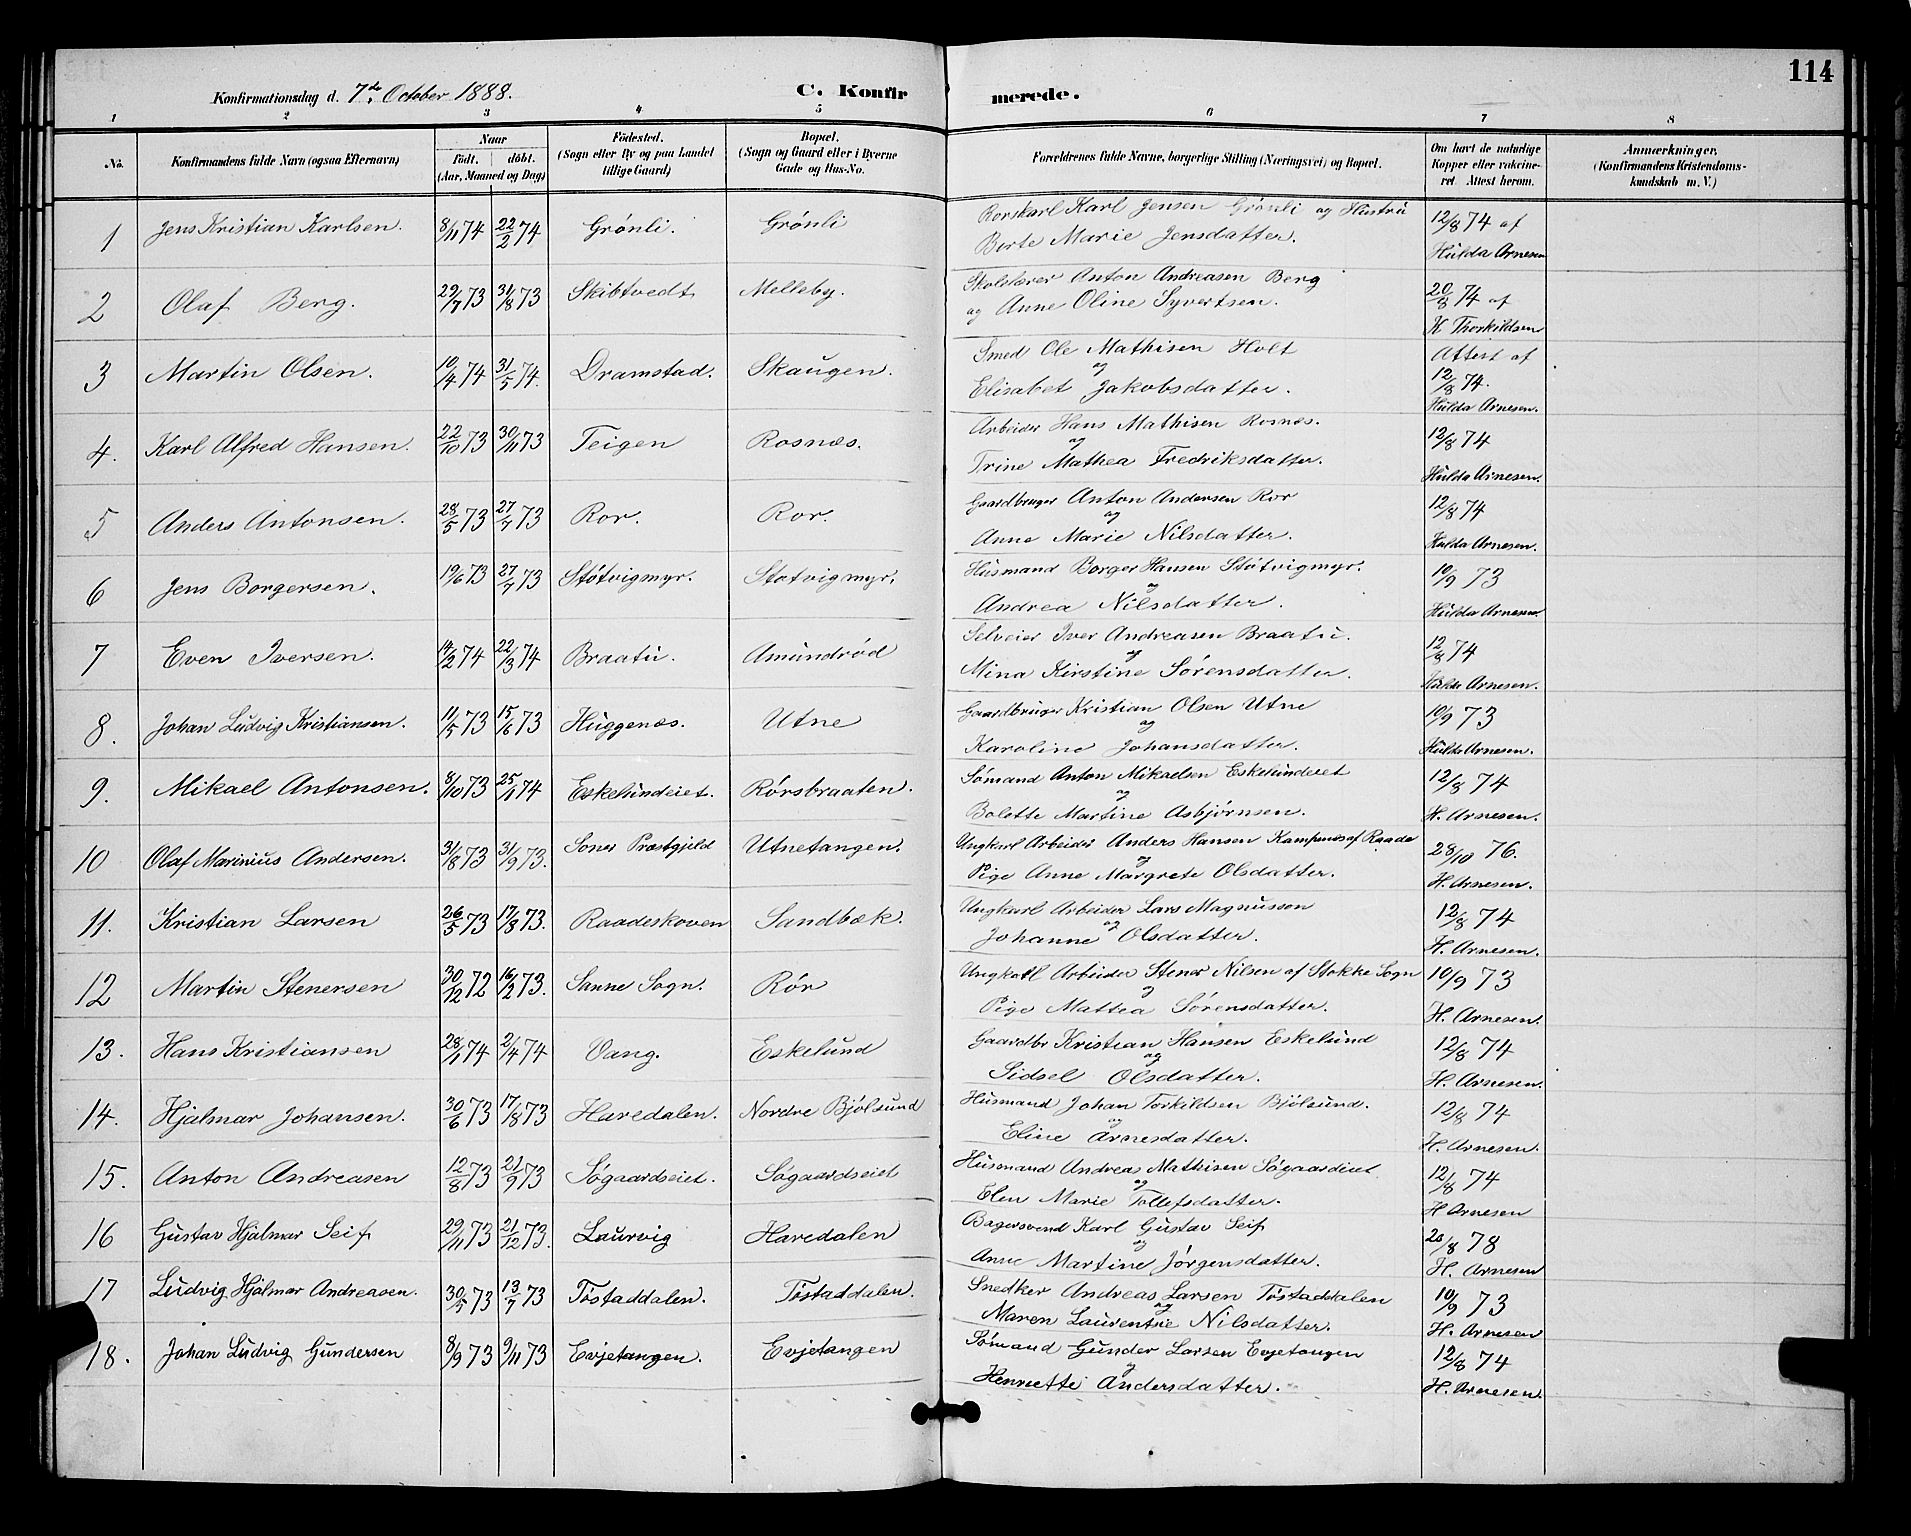 114
Konfirmationsdag d. 7de October 1888. C. Konfirmerede.
1 2 3 4 5 6 7 8
No. Konfirmandens fulde Navn (ogsaa Efternavn) Naar Født. døbt. (Aar, Maaned og Dag) Fødested. (Sogn eller By og paa Landet tillige Gaard) Bopæl. (Sogn og Gaard eller i Byerne Gade og Hus-No. Forældrenes fulde Navne, borgerlige Stilling (Næringsvei) og Bopæl. Om havt de naturlige Kopper eller vaccineret. Attest herom. Anmærkninger, (Konfirmandens Kristendomskundskab m. V.)
1 Jens Kristian Karlsen. 8/11 74 22/2 74 Grønli. Grønli Rorskarl Karl Jensen Grønli og Hustru 12/8 74 af
Borte Marie Jensdatter. Hulda Arnesen
2 Olaf Berg. 29/7 73 31/8 73 Skibtvedt Melleby. Skolelærer Anton Andreasen Berg 20/8 74 af
og Anne Oline Syvertsen. K Thorkildsen
3 Martin Olsen. 10/4 74 31/5 74. Dramstad. Skaugen. Smed Ole Mathisen Holt Attest af
og 12/8 74.
Elisabet Jakobsdatter. Hulda Arnesen.
4. Karl Alfred Hansen. 22/10 73 30/11 73 Teigen Rosnæs. Arbeider Hans Mathisen Rosnæs. 12/8 74
og
Trine Mathea Fredriksdatter. Hulda Arnesen.
5 Anders Antonsen. 28/5 73 27/7 73 Ror. Ror. Gaardbruger Anton Andersen Ror 12/8 74
og
Anne Marie Nilsdatter. Hulda Arnesen.
6 Jens Borgersen. 19/6 73 27/7 73 Støtvigmyr. Støtvigmyr. Husmand Borger Hansen Støtvigmyr. 10/9 73
og
Andrea Nilsdatter. Hulda Arnesen
7 Even Iversen. 14/2 74 22/3 74 Braatu. Amundrød Selveier Iver Andreasen Braatu. 12/8 74
og
Mina Kirstine Sørensdatter. Hulda Arnesen.
8. Johan Ludvig Kristiansen. 11/5 73 15/6 73 Huggenæs. Utne Gaardbruger Kristian Olsen Utne 10/9 73
og
Karoline Johansdatter. Hulda Arnesen.
9. Mikael Antonsen. 8/10 73 25/1 74 Eskelundeiet. Rørsbraaten. Sømand Anton Mikaelsen Eskelunderet 12/8 74
og
Bolette Martine Asbjørnsen. H. Arnesen.
10 Olaf Marinius Andersen. 31/8 73 31/9 73. Soner Præstgjeld Utnetangen. Ungkarl Arbeider Anders Hansen Kampenæs af Raade 28/10 76.
og
Pige Anne Margrete Olsdatter. H. Arnesen.
11. Kristian Larsen 26/5 73 17/8 73. Raadeskoven Sandbæk. Ungkarl Arbeider Lars Magnusson 12/8 74
og
Johanne Olsdatter. H. Arnesen.
12 Martin Stenersen 30/12 72 16/2 73. Sanne Sogn. Rør Ungkarl Arbeider Stener Nilsen af Stokke Sogn 10/9 73
og
Pige Mattea Sørensdatter. H. Arnesen.
13. Hans Kristiansen 28/1 74 2/4 74 Vang. Eskelund Gaardbr Kristian Hansen Eskelund 12/8 74
og
Sidsel Olsdatter. H. Arnesen.
14. Hjalmar Johansen. 30/6 73 17/8 73 Haredalen. Nordre Bjølsund Husmand Johan Torkildsen Bjølsund. 12/8 74
og
Eline Arnesdatter. H. Arnesen.
15. Anton Andreasen 12/8 73 21/9 73 Søgaardseiet. Søgaardseiet Husmand Andreas Mathisen Søgaardeiet 12/8 74
og
Elen Marie Tollefsdatter. H Arnesen
16 Gustav Hjalmar Seif 29/11 73 21/12 73. Laurvig Haredalen Bagersvend Karl Gustav Seif 20/8 78
og
Anne Martine Jørgensdatter. H. Arnesen
17 Ludvig Hjalmar Andreasen. 30/5 73 13/7 73 Tøstaddalen. Tøstaddalen. Snedker Andreas Larsen Tøstaddalen 10/9 73
og
Maren Laurentine Nilsdatter. H. Arnesen
18. Johan Ludvig Gundersen 8/9 73 9/11 73 Evjetangen. Evjetangen Sømand Gunder Larsen Evjetangen 12/8 74
og
Henriette Andersdatter. H. Arnesen.